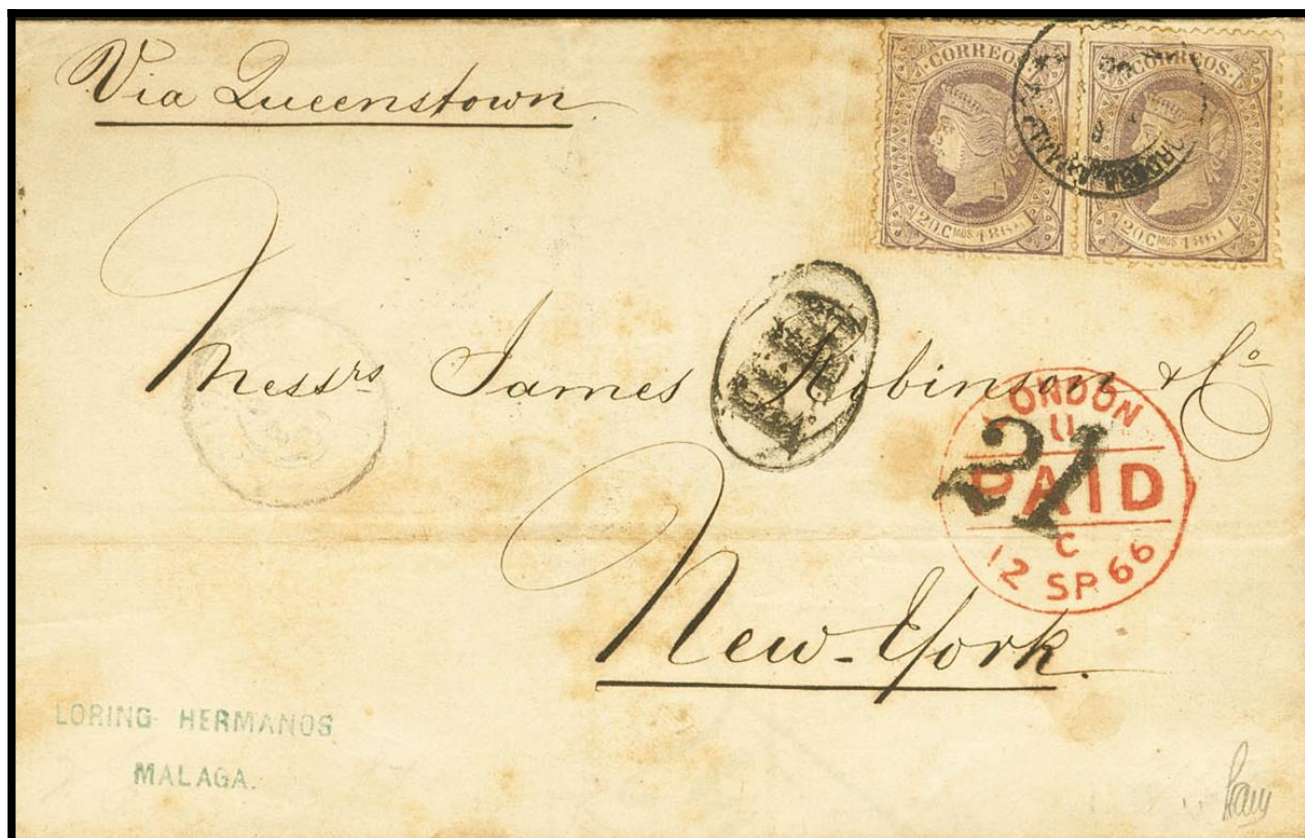 Via Queenstown
CORREOS
CORREOS
20 CMOS 186
20 CMOS 186
Messrs James Robinson & Co
LONDON
21
PAID
C
12 SP 66
New-York.
LORING HERMANOS
MALAGA.